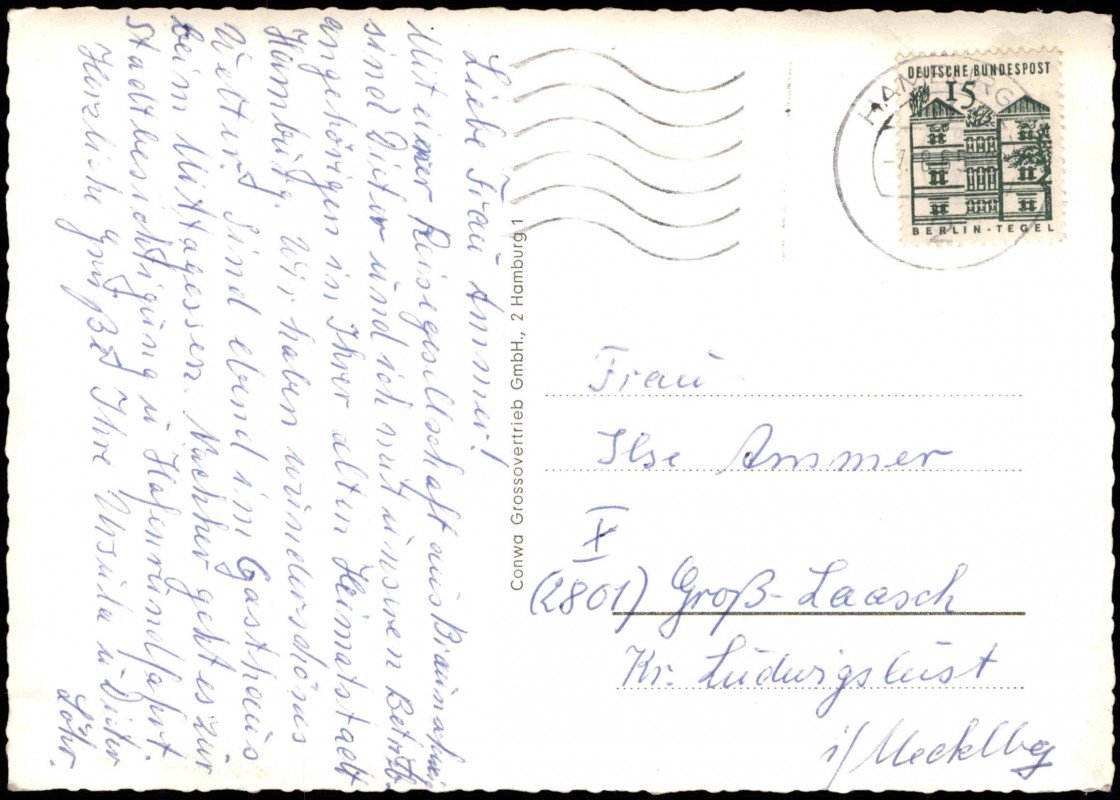 Liebe Frau Ammer!
Mit einer Reisegesellschaft aus Braunschweig
sind Dieter und ich mit unseren Betriebs-
angehörigen in Ihrer alten Heimatstadt
Hamburg. Wir haben wunderschönes
Wetter. Sind eben im Gasthaus
beim Mittagessen. Nachher geht es zur
Stadtbesichtigung u Hafenrundfahrt.
Herzliche Grüße Ihre Ursula u Dieter
Löhr.
Conwa Grossovertrieb GmbH., 2 Hamburg 1
HAMBURG
DEUTSCHE BUNDESPOST
15
BERLIN-TEGEL
Frau
Ilse Ammer
X
(2801) Groß-Laasch
Kr. Ludwigslust
i/Mecklbg